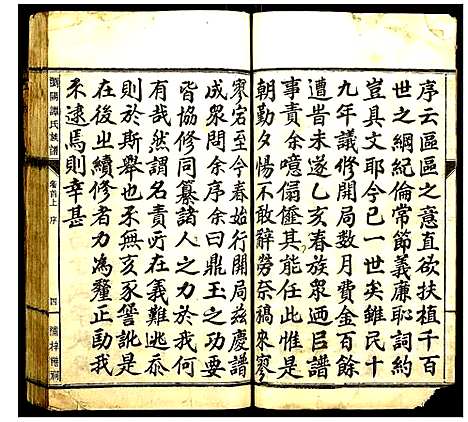 序云區區之意直欲扶植千百
世之綱紀倫常節義廉恥詞約
豈具文耶今已一世矣雖民十
九年議修開局數月費金百餘
遭時未遂乙亥春族眾迺巨譜
事責余噫傷饉其能任此惟是
朝勤夕惕不敢辭勞奈稿來寥
寥宕至今春始行開局茲慶譜
成眾問余序余曰鼎玉之功居
皆協修同纂諸人之力於我何
有哉然謂名責所在義難逃忝
則於斯舉也不無亥豕訾訛是
在後出續修者力為釐正勖我
不逮焉則幸甚
瀏陽譚氏族譜
卷首上 序
四